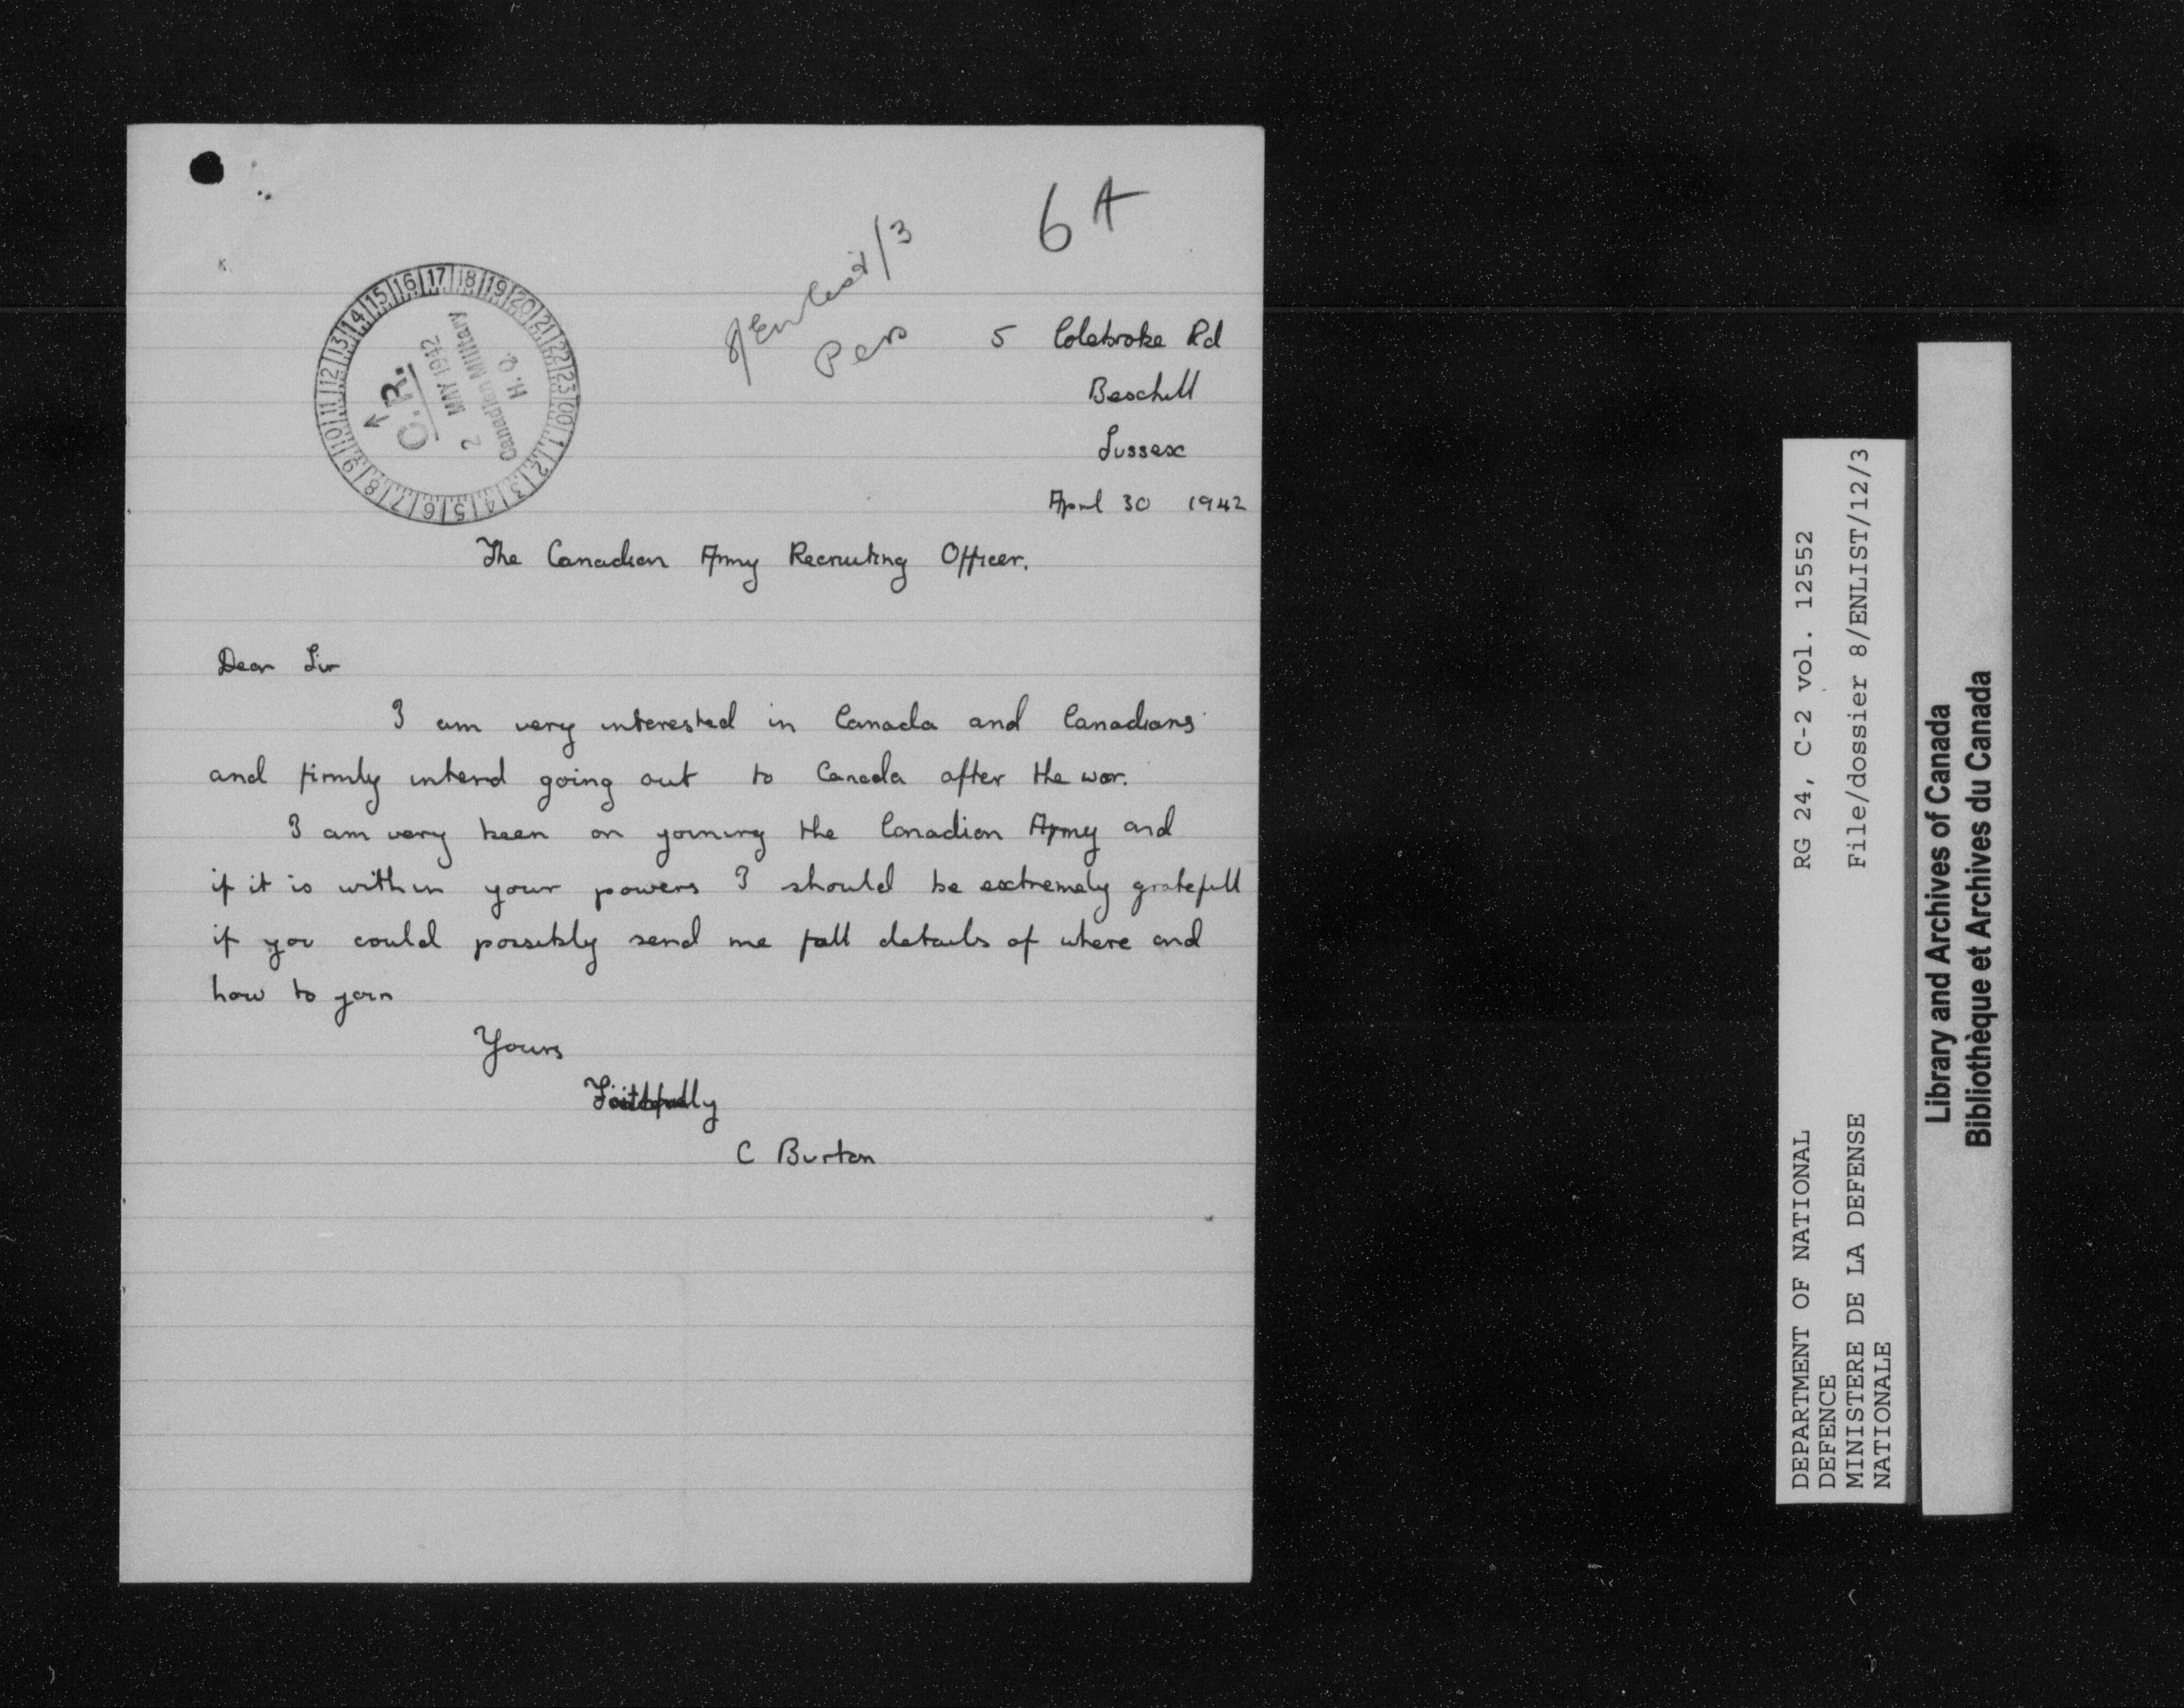 6A
8/Enlist/3
Pers
16 17 18 19 20 21 22 23 00 1 2 3 4 5 6 7 8 9 10 11 12 13 14 15
C.R.
2 MAY 1942
Canadian Military
H. Q.
5 Colebroke Rd
Bexhill
Sussex
April 30 1942
The Canadian Army Recruiting Officer.
Dear Sir
I am very interested in Canada and Canadians
and firmly intend going out to Canada after the war.
I am very keen on joining the Canadian Army and
if it is within your powers I should be extremely gratefull
if you could possibly send me full details of where and
how to join
Yours
Faithfully
C Burton
DEPARTMENT OF NATIONAL RG 24, C-2 vol. 12552
DEFENCE
MINISTERE DE LA DEFENSE File/dossier 8/ENLIST/12/3
NATIONALE
Library and Archives of Canada
Bibliothèque et Archives du Canada